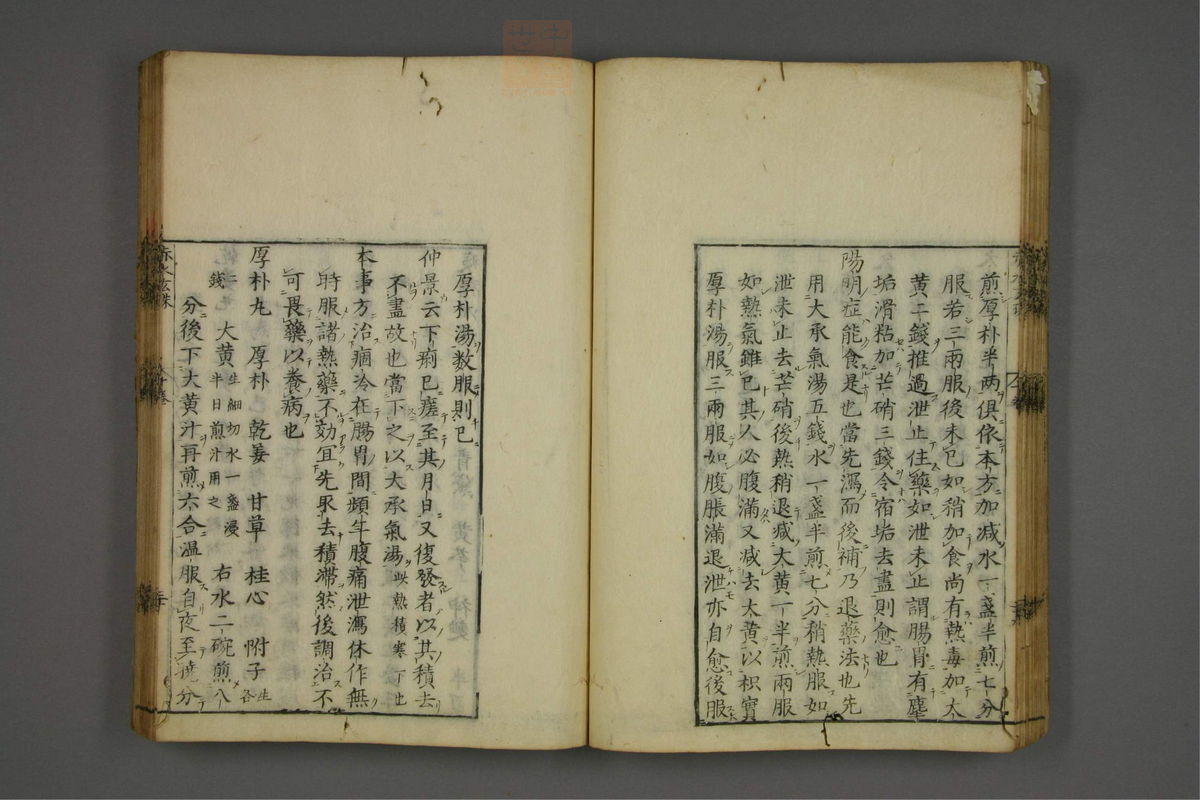 煎厚朴半兩俱依本方加減水一盞半煎七分
服若三兩服後未已如稍加食尚有熱毒加大
黄二錢推過泄止住藥如泄未止謂腸胃有塵
垢滑粘加芒硝三錢令宿垢去盡則愈也
陽明症能食是也當先瀉而後補乃退藥法也先
用大承氣湯五錢水一盞半煎七分稍熱服如
泄未止去芒硝後熱稍退減大黄一半煎兩服
如熱氣雖已其人必腹滿又減去大黄以枳實
厚朴湯服三兩服如腹脹滿退泄亦自愈後服
厚朴湯数服則已
仲景云下痢已瘥至其月日又復發者以其積去
不盡故也當下之以大承氣湯此熱積寒丁也
本事方治痼冷在腸胃間頻年腹痛泄瀉休作無
時服諸熱藥不効宜先取去積滯然後調治不
可畏藥以養病也
厚朴丸 厚朴 乾姜 甘草 桂心 附子生各
錢 大黄生細切水一盞浸半日煎汁用之 右水二碗煎八
分後下大黄汁再煎六合温服自夜至曉分
赤水玄珠